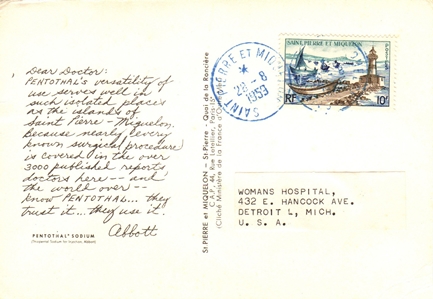 Dear Doctor:
PENTOTHAL'S versatility of
use serves well in
such isolated places
as the islands of
Saint Pierre-Miquelon.
Because nearly every
known surgical procedure
is covered in the over
3000 published reports
doctors here -- and
the world over --
know PENTOTHAL... they
trust it... they use it.
Abbott
PENTOTHAL® SODIUM
(Thiopental Sodium for Injection, Abbott)
St PIERRE et MIQUELON - St-Pierre - Quai de la Roncière
C.A.P., 44, Rue Letellier, Paris-15
(Cliché Ministère de la France d'O
SAINT PIERRE ET MIQU
28-8
1953
SAINT-PIERRE ET MIQUELON
RF
POSTES
10F
WOMANS HOSPITAL,
432 E. HANCOCK AVE.
DETROIT 1, MICH.
U. S. A.